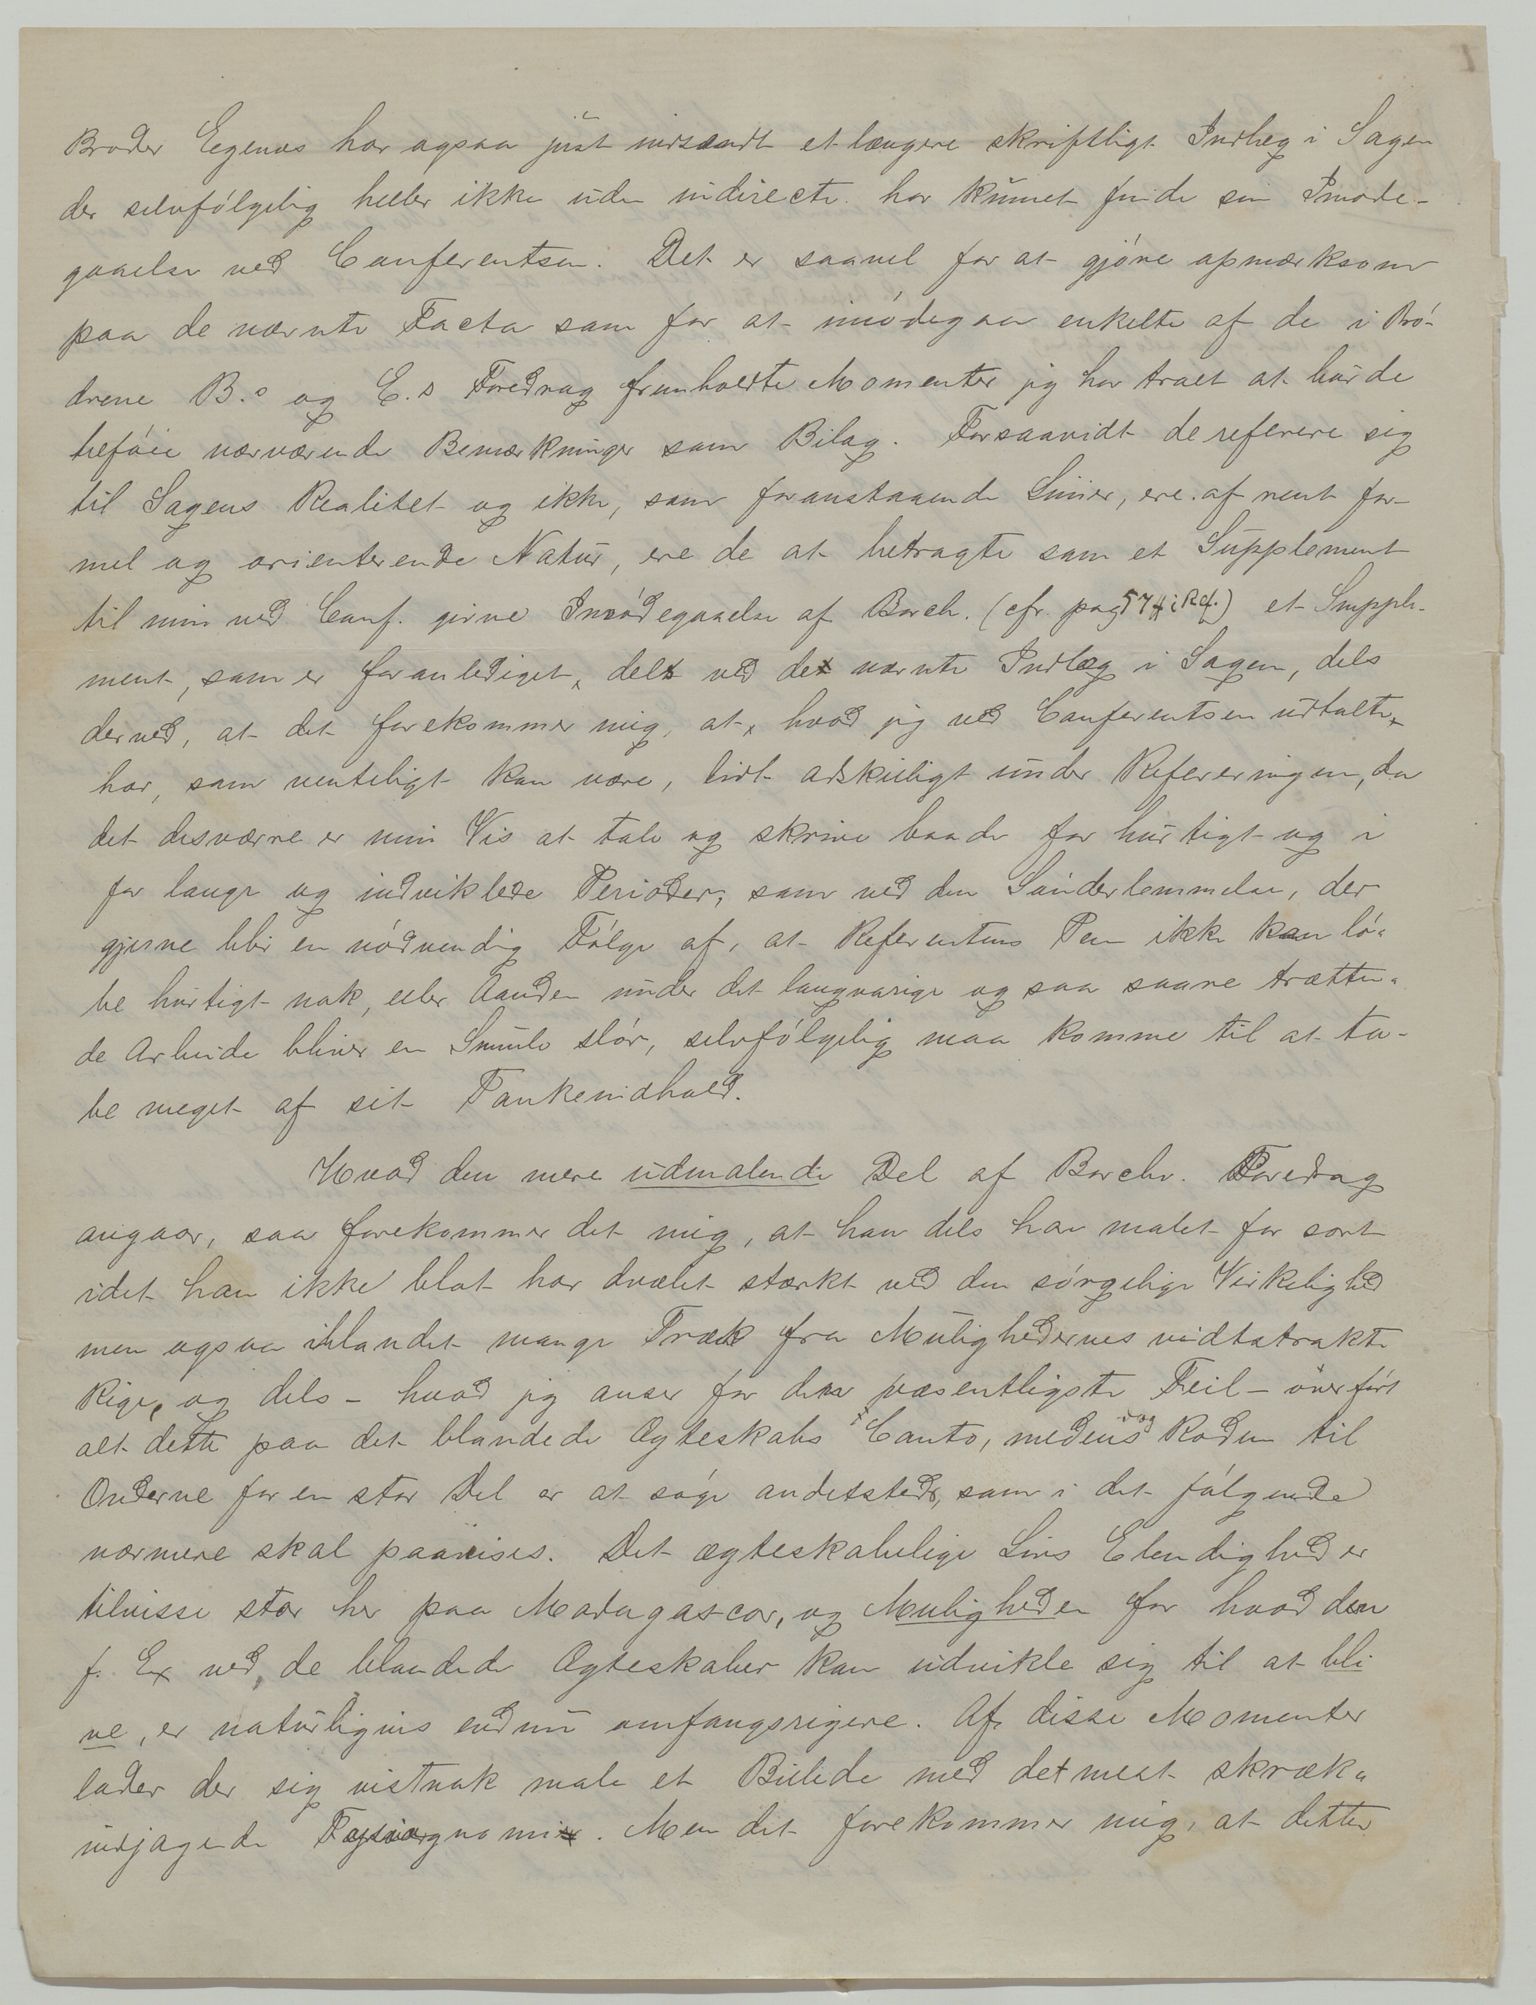 Broder Egenæs har ogsaa just indsendt et længere skriftligt Indlæg i Sagen
der selvfølgelig heller ikke uden indirecte har kunnet finde sin Imøde-
gaaelse ved Conferentsen. Det er saavel for at gjøre opmærksom
paa de nævnte Facta som for at imødegaa enkelte af de i Brø-
drene B.s og E.s Foredrag fremholdte Momenter jeg har troet at burde
tilføie nærværende Bemærkninger som Bilag. Forsaavidt de referere sig
til Sagens Realitet og ikke, som foranstaaende Linier, ere af rent for-
mel og orienterende Natur, ere de at betragte som et Supplement
til min ved Conf. givne Imødegaaelse af Borch. (cfr. pag 57 ff i Ref.) et Supple-
ment, som er foranlediget, dels ved det nævnte Indlæg i Sagen, dels
derved, at det forekommer mig, at, hvad jeg ved Conferentsen udtalte,
har, som venteligt kan være, lidt adskilligt under Refereringen, da
det desværre er min Vis at tale og skrive baade for hurtigt og i
for lange og indviklede Perioder, som ved den Sønderlemmelse, der
gjerne blir en nødvendig Følge af, at Referentens Pen ikke kan lø-
be hurtigt nok, eller Aanden under det langvarige og saa saare trætten-
de Arbeide bliver en Smule sløv, selvfølgelig maa komme til at ta-
be meget af sit Tankeindhold.
Hvad den mere udmalende Del af Borchr. Foredrag
angaar, saa forekommer det mig, at han dels har malet for sort
idet han ikke blot har dvælet stærkt ved den sørgelige Virkelighed
men ogsaa iblandet mange Træk fra Mulighedernes vidtstrakte
Rige, og dels – hvad jeg anser for den væsentligste Feil – overført
alt dette paa det blandede Ægteskabs Conto, medens dog Roden til
Onderne for en stor Del er at søge andetsteds, som i det følgende
nærmere skal paavises. Det ægteskabelige Livs Elendighed er
tilvisse stor her paa Madagascar, og Muligheden for hvad den
f. Ex ved, de blandede Ægteskaber kan udvikle sig til at bli
ve, er naturligvis endnu omfangsrigere. Af disse Momenter
lader der sig vistnok male et Billede med det mest skræk-
indjagende Fysiognomi. Men det forekommer mig, at dette